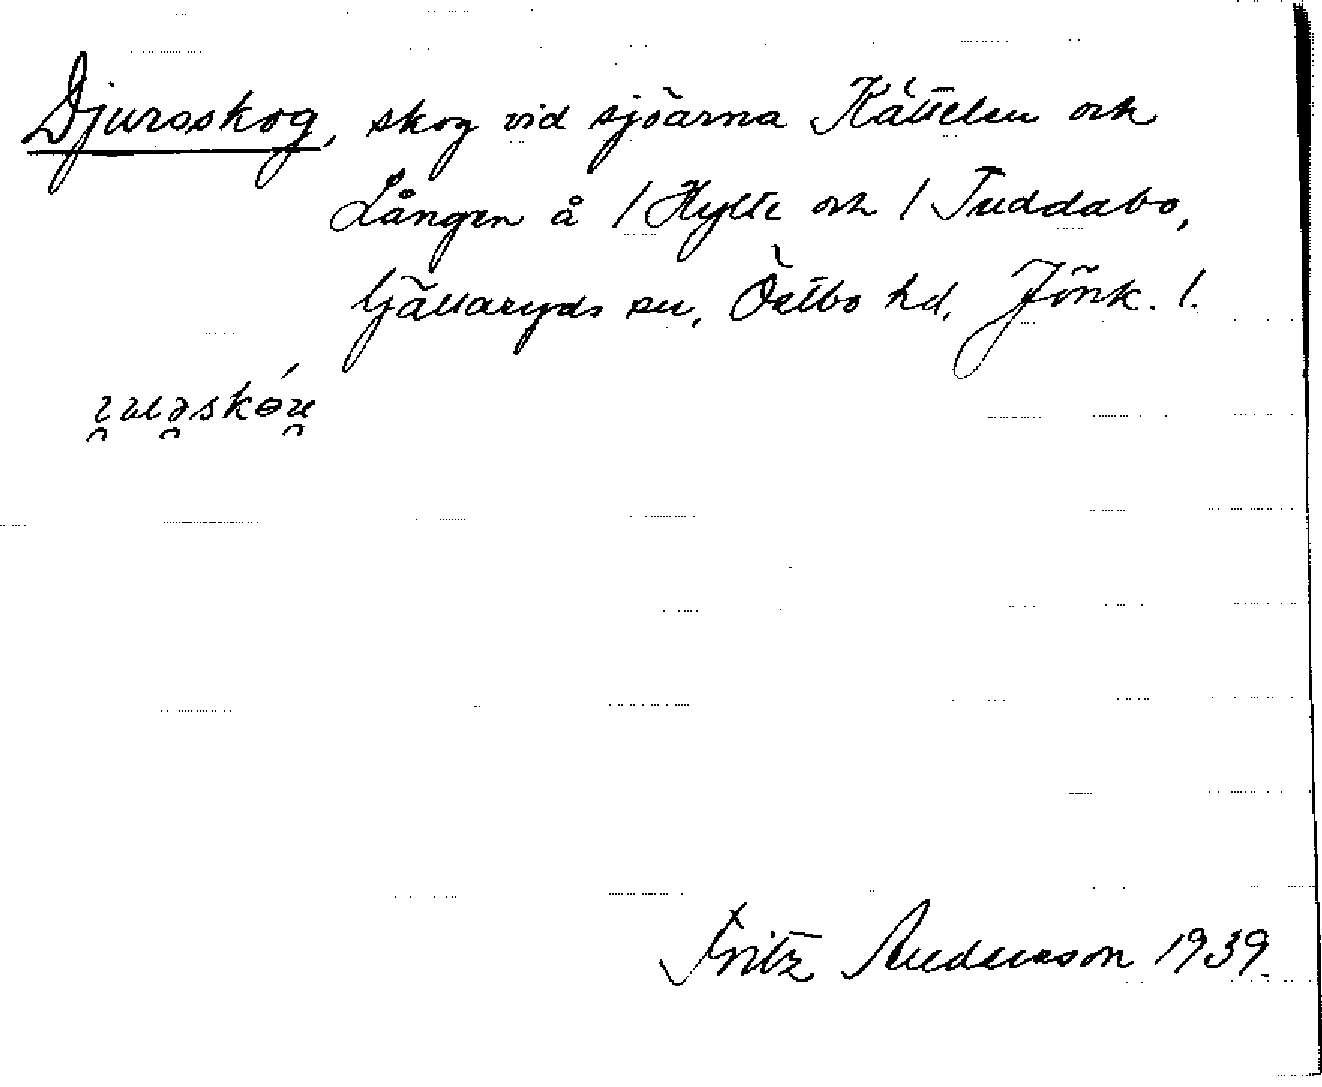 Djursskog, skog vid sjöarna Kättelsn och
Lången å 1 Hylte och 1 Tuddabo,
Gällaryds sn, Östbo hd, Jönk. l.
Fritz Anderson 1939